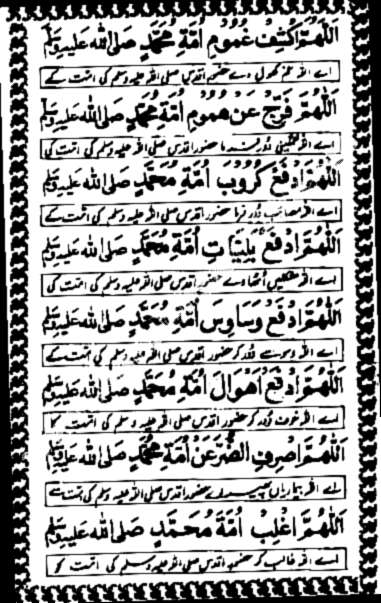 اَللّٰهُمَّ اكْشِفْ غُمُوْمِ اُمَّةِ مُحَمَّدٍ صَلَی الله عَلَیهِ وَسَلَّم
اے اللہ غم کھول دے حضور اقدس صلی اللہ علیہ وسلم کی امت کے
اَللّٰهُمَّ فَرِّجْ عَنْ هُمُوْمِ اُمَّةِ مُحَمَّدٍ صَلَی الله عَلَیهِ وَسَلَّم
اے اللہ غمگینی دور فرما حضور اقدس صلی اللہ علیہ وسلم کی امت کی
اَللّٰهُمَّ ادْفَعْ كُرُوْبَ اُمَّةِ مُحَمَّدٍ صَلَی الله عَلَیهِ وَسَلَّم
اے اللہ مصائب دور فرما حضور اقدس صلی اللہ علیہ وسلم کی امت کے
اَللّٰهُمَّ ادْفَعْ بَلِيَّاتِ اُمَّةِ مُحَمَّدٍ صَلَی الله عَلَیهِ وَسَلَّم
اے اللہ مشکلیں اٹھا دے حضور اقدس صلی اللہ علیہ وسلم کی امت کی
اَللّٰهُمَّ ادْفَعْ وَسَاوِسَ اُمَّةِ مُحَمَّدٍ صَلَی الله عَلَیهِ وَسَلَّم
اے اللہ وسوسے دور کر حضور اقدس صلی اللہ علیہ وسلم کی امت کے
اَللّٰهُمَّ ادْفَعْ اَهْوَالَ اُمَّةِ مُحَمَّدٍ صَلَی الله عَلَیهِ وَسَلَّم
اے اللہ خوف دور کر حضور اقدس صلی اللہ علیہ وسلم کی امت کا
اَللّٰهُمَّ اصْرِفِ الضُّرَّ عَنْ اُمَّةِ مُحَمَّدٍ صَلَی الله عَلَیهِ وَسَلَّم
اے اللہ بیماریاں پھیر دے حضور اقدس صلی اللہ علیہ وسلم کی امت سے
اَللّٰهُمَّ اغْلِبْ اُمَّةَ مُحَمَّدٍ صَلَی الله عَلَیهِ وَسَلَّم
اے اللہ غالب کر حضور اقدس صلی اللہ علیہ وسلم کی امت کو